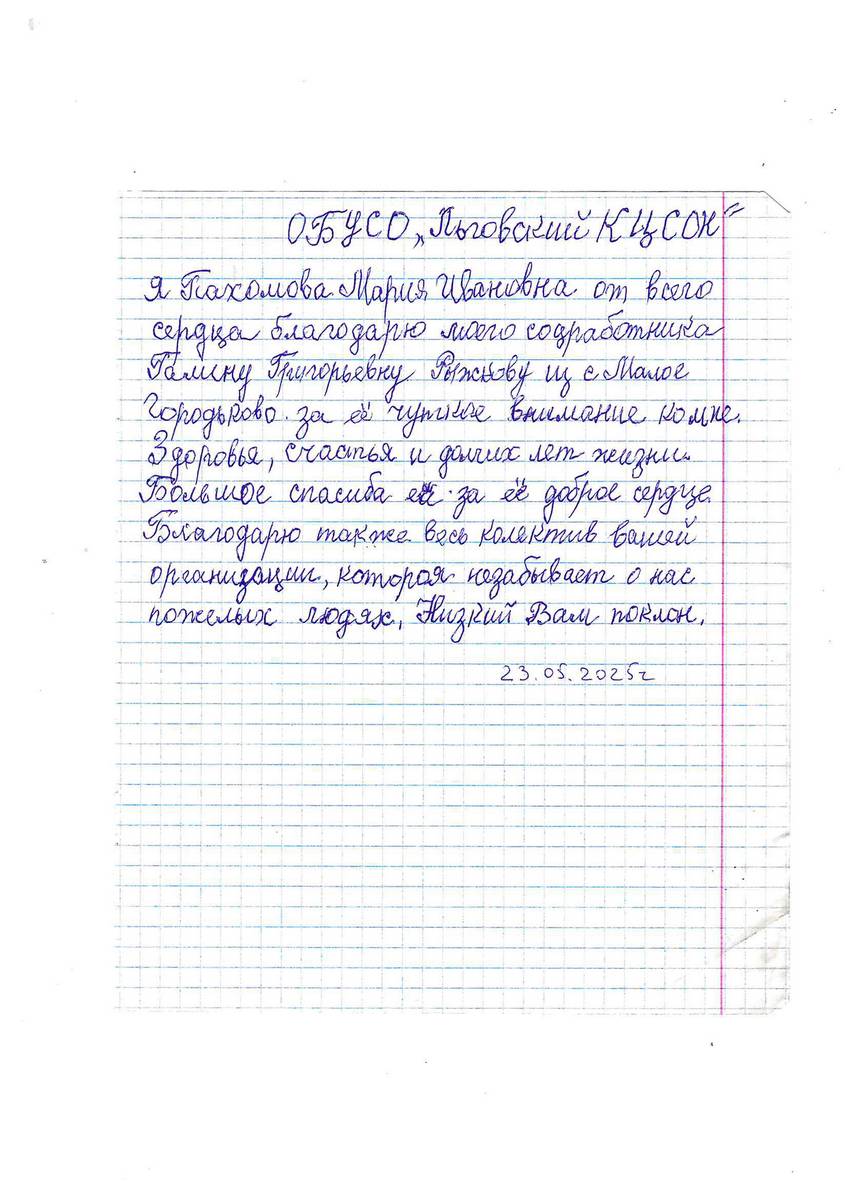 ОБУСО „Льговский КЦСОН"
Я Пахомова Мария Ивановна от всего
сердца благодарю моего соцработника
Галину Григорьевну Рыжкову из с Малое
Городьково. за её чуткое внимание ко мне.
Здоровья, счастья и долгих лет жизни.
Большое спасиба ей за её доброе сердце.
Благодарю также весь колектив вашей
организации, которая незабывает о нас
пожелых людях, Низкий Вам поклон.
23.05.2025г